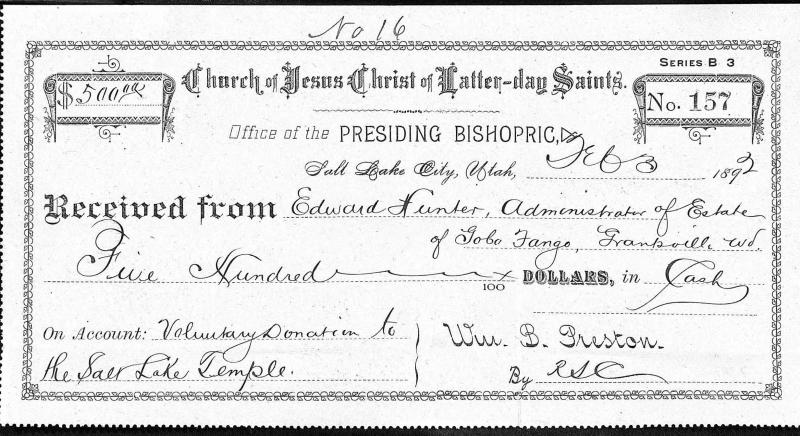 No 16
Series B 3
$500.00
Church of Jesus Christ of Latter-day Saints.
No. 157
Office of the PRESIDING BISHOPRIC,
Salt Lake City, Utah, Feb 3 1892
Received from Edward Hunter, Administrator of Estate
of Gobo Fango, Grantsville Wd.
Five Hundred 100 DOLLARS, in Cash
On Account: Voluntary Donation to
the Salt Lake Temple.
Wm. B. Preston.
By RSC